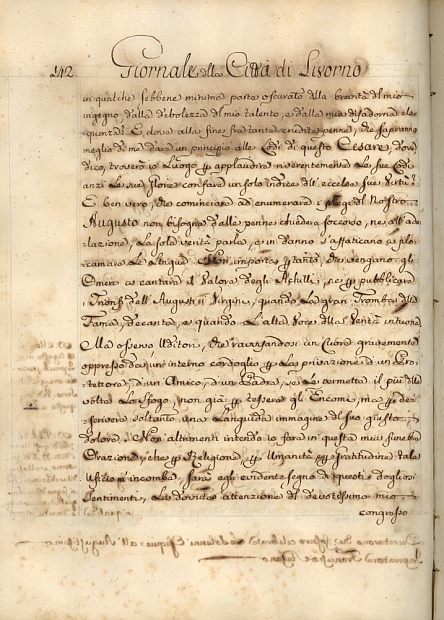 142 Giornale della Città di Livorno
in qualche sebbene minima parte oscurato dalla brevità del mio
ingegno, dalla debolezza del mio talento, e dalla mia disadorna elo-
quenza? E dove alla fine fra tante erudite penne, che sapranno
meglio di me dare un principio alle Lodi di questo Cesare, dove
dico, troverò io Luogo per applaudire riverentemente Le sue Lodi
anzi Le sue glorie con fare un solo indice dell'eccelse sue Virtù?
E ben vero, che cominciar ad enumerare i pregi del Nostro
Augusto non bisogna dalle penne chieder soccorso, ne all'adu-
lazione, La sola verità parla, e in danno s'affaticano a pro-
clamare Le Lingue. Non importa per tanto, che vengano gli
Omeri a cantare il Valore degli Achilli, ne per pubblicare
i Trionfi dell'Augusti i Virgili, quando La gran Tromba della
Fama, decanta, e quando L'alta Voce della Verità intuona
Ma osservo Uditori, che ravvisandosi un Cuore gravemente
oppresso da un'interno cordoglio per La privazione d'un Pro-
tettore, d'un Amico, d'un Padre, se Le permetta il più delle
volte Lo sfogo, non già per tessere gli Encomi, ma per de-
scrivere soltanto una Languida immagine di suo giusto
dolore. Non altrimenti intendo io fare in questa mia funebre
Orazione, che per Religione per Umanità e per Gratitudine tale
Uficio mi incomba, sarà egli evidente segno di questi dogliosi
Sentimenti, La dovuta attenzione di devotissimo mio
congresso